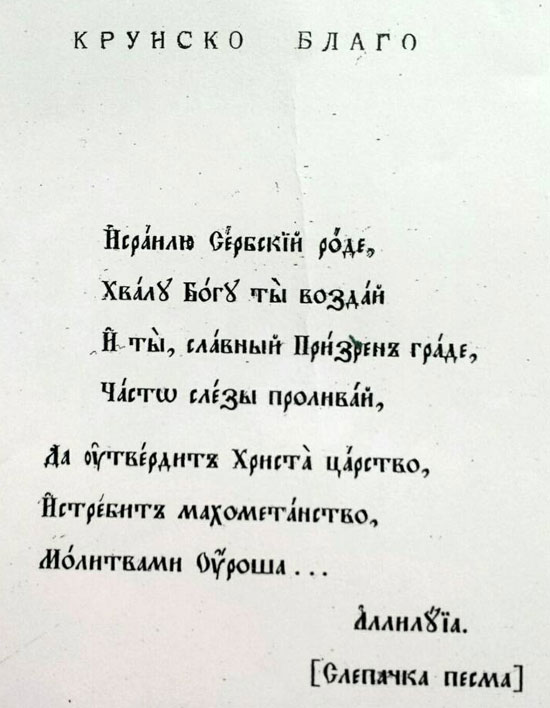 КРУНСКО БЛАГО
И҆сра́илю Се́рбскїй ро́де,
Хвалꙋ̀ Бо́гꙋ ты̀ возда́й
И҆̑ ты̀, сла́вный При́зренъ гра́де,
Ча́стѡ сле́зы пролива́й,
Да ᲂу҆тве́рдитъ Христа̀ ца́рство,
И҆стре́битъ махомета́нство,
Мо́литвами Оу҆́роша...
А҆ллилꙋ́їа.
[Слепачка песма]